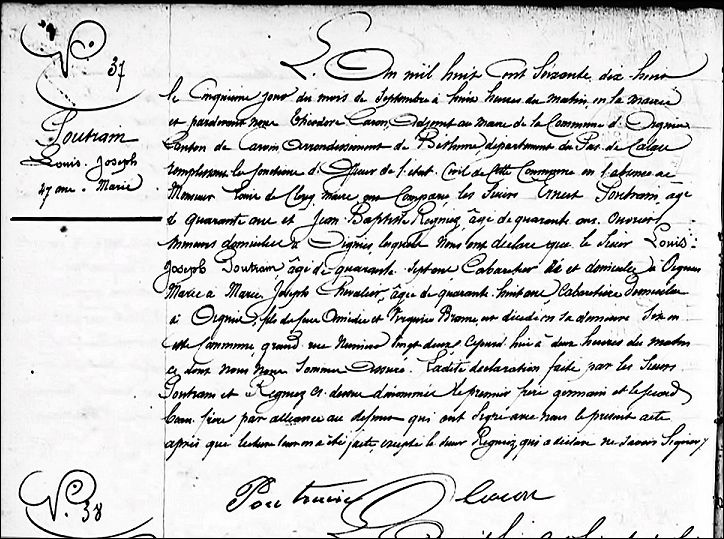 N° 37
Poutrain
Louis Joseph
47 ans Marié
L'An mil huit cent soixante dix huit
le cinquième jour du mois de Septembre à heures du matin, en la mairie
et pardevant nous Théodore Caron, Adjoint au maire de la Commune d'Oignies
Canton de Carvin Arrondissement de Béthune département du Pas de Calais
remplissant les fonctions d'Officier de l'état Civil de cette Commune en l'absence de
Monsieur de Clercq maire, ont Comparu les Sieurs Ernest Poutrain, âgé
de quarante ans et Jean Baptiste Regniez, âgé de quarante ans Ouvriers
mineurs domiciliés à Oignies, lesquels Nous ont déclaré que le Sieur Louis
Joseph Poutrain, âgé de quarante sept ans Cabaretier né et domicilié à Oignies
Marié à Marie Joseph Chevalier, âgée de quarante huit ans Cabaretière domiciliée
à Oignies, fils de feu Amédée et Virginie Brame, est décédé en sa demeure Sise en
cette Commune, grand rue Numéro vingt deux Cejourd'hui à deux heures du matin
ce dont nous nous Sommes assuré. Ladite déclaration faite par les Sieurs
Poutrain et Regniez ci dessus dénommés le premier frère germain et le second
beau frère par alliance au défunt qui ont Signé avec nous le présent acte
après que lecture leur en a été faite, excepté le Sieur Regniez, qui a déclaré ne Savoir Signer
Poutrain Caron
N° 38